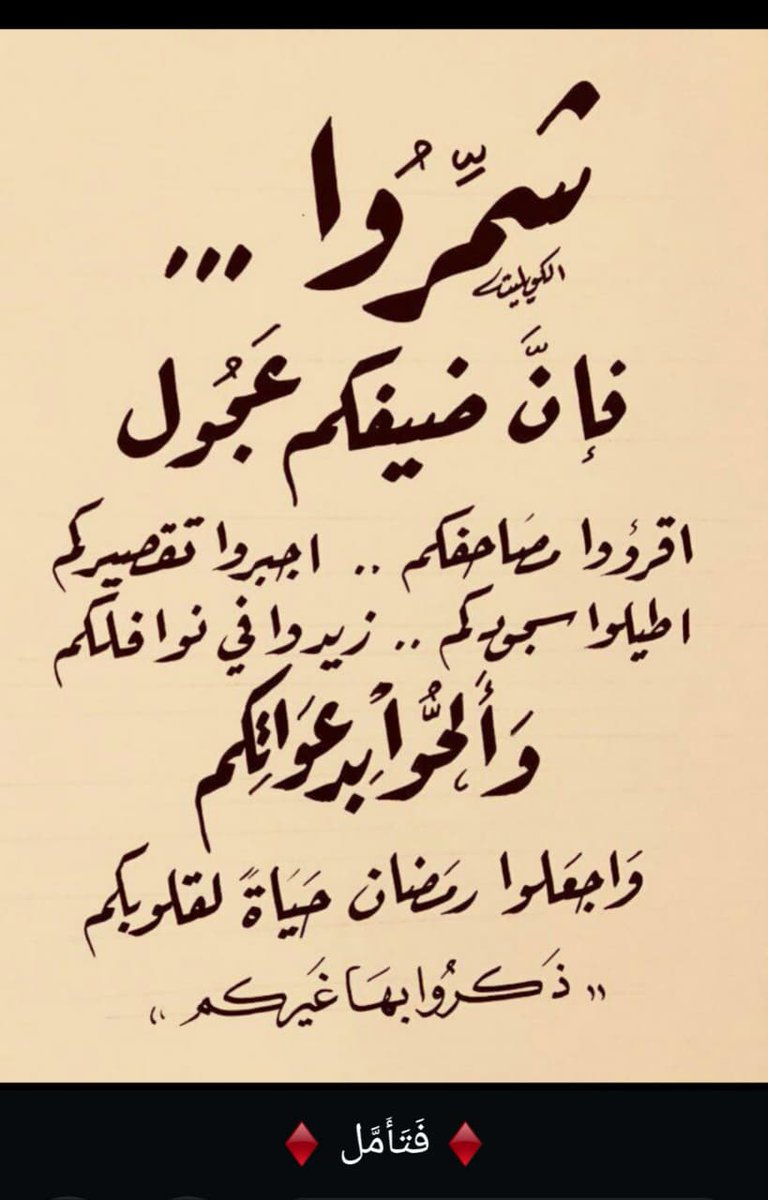 شَمِّرُوا ...
فإنَّ ضيفكم عَجُول
اقرؤوا مصَاحفكم .. اجبروا تقصيركم
اطيلوا سجودكم .. زيدوا في نوافلكم
وَأَلِحُّوا بِدعَوَاتِكم
وَاجعَلوا رمَضان حَيَاةً لقلوبكم
"ذَكرُوا بهَا غَيركم"
فَتَأَمَّل